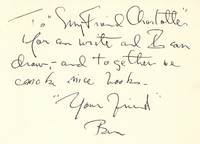 To "My Friend Charlotte"
You can write and I can
draw, and together we
can make nice books.
"Your friend"
Ben